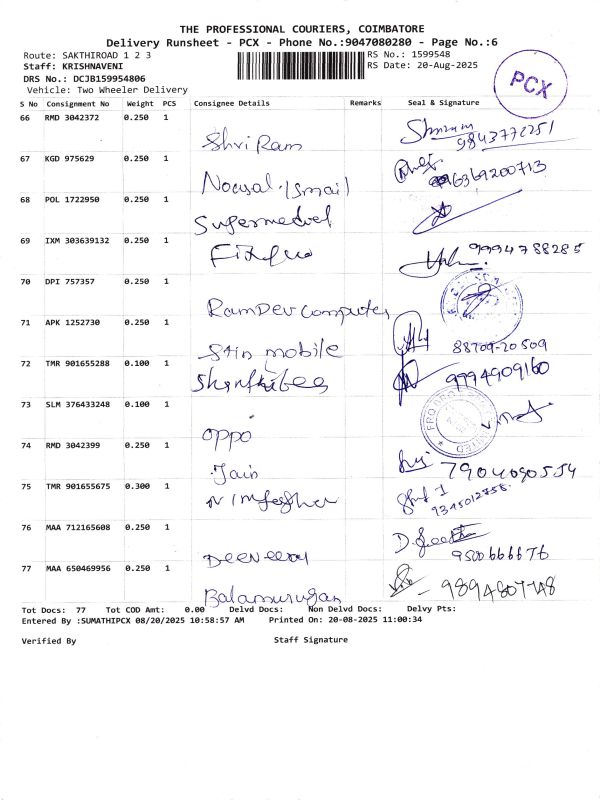 THE PROFESSIONAL COURIERS, COIMBATORE
Delivery Runsheet - PCX - Phone No.:9047080280 - Page No.:6
Route: SAKTHIROAD 1 2 3
RS No.: 1599548
Staff: KRISHNAVENI
RS Date: 20-Aug-2025
DRS No.: DCJB159954806
Vehicle: Two Wheeler Delivery
PCX
S No Consignment No Weight PCS Consignee Details Remarks Seal & Signature
66 RMD 3042372 0.250 1
Shri Ram 9843772251
67 KGD 975629 0.250 1
6369200713
68 POL 1722950 0.250 1
69 IXM 303639132 0.250 1
9994788285
70 DPI 757357 0.250 1
RamDev Computer
71 APK 1252730 0.250 1
mobile 88709-20509
72 TMR 901655288 0.100 1
9994909160
73 SLM 376433248 0.100 1
oppo
74 RMD 3042399 0.250 1
Jain 7904090554
75 TMR 901655675 0.300 1
9345012758
76 MAA 712165608 0.250 1
9500666676
77 MAA 650469956 0.250 1
Balamurugan 9894807748
Tot Docs: 77 Tot COD Amt: 0.00 Delvd Docs: Non Delvd Docs: Delvy Pts:
Entered By :SUMATHIPCX 08/20/2025 10:58:57 AM Printed On: 20-08-2025 11:00:34
Verified By Staff Signature